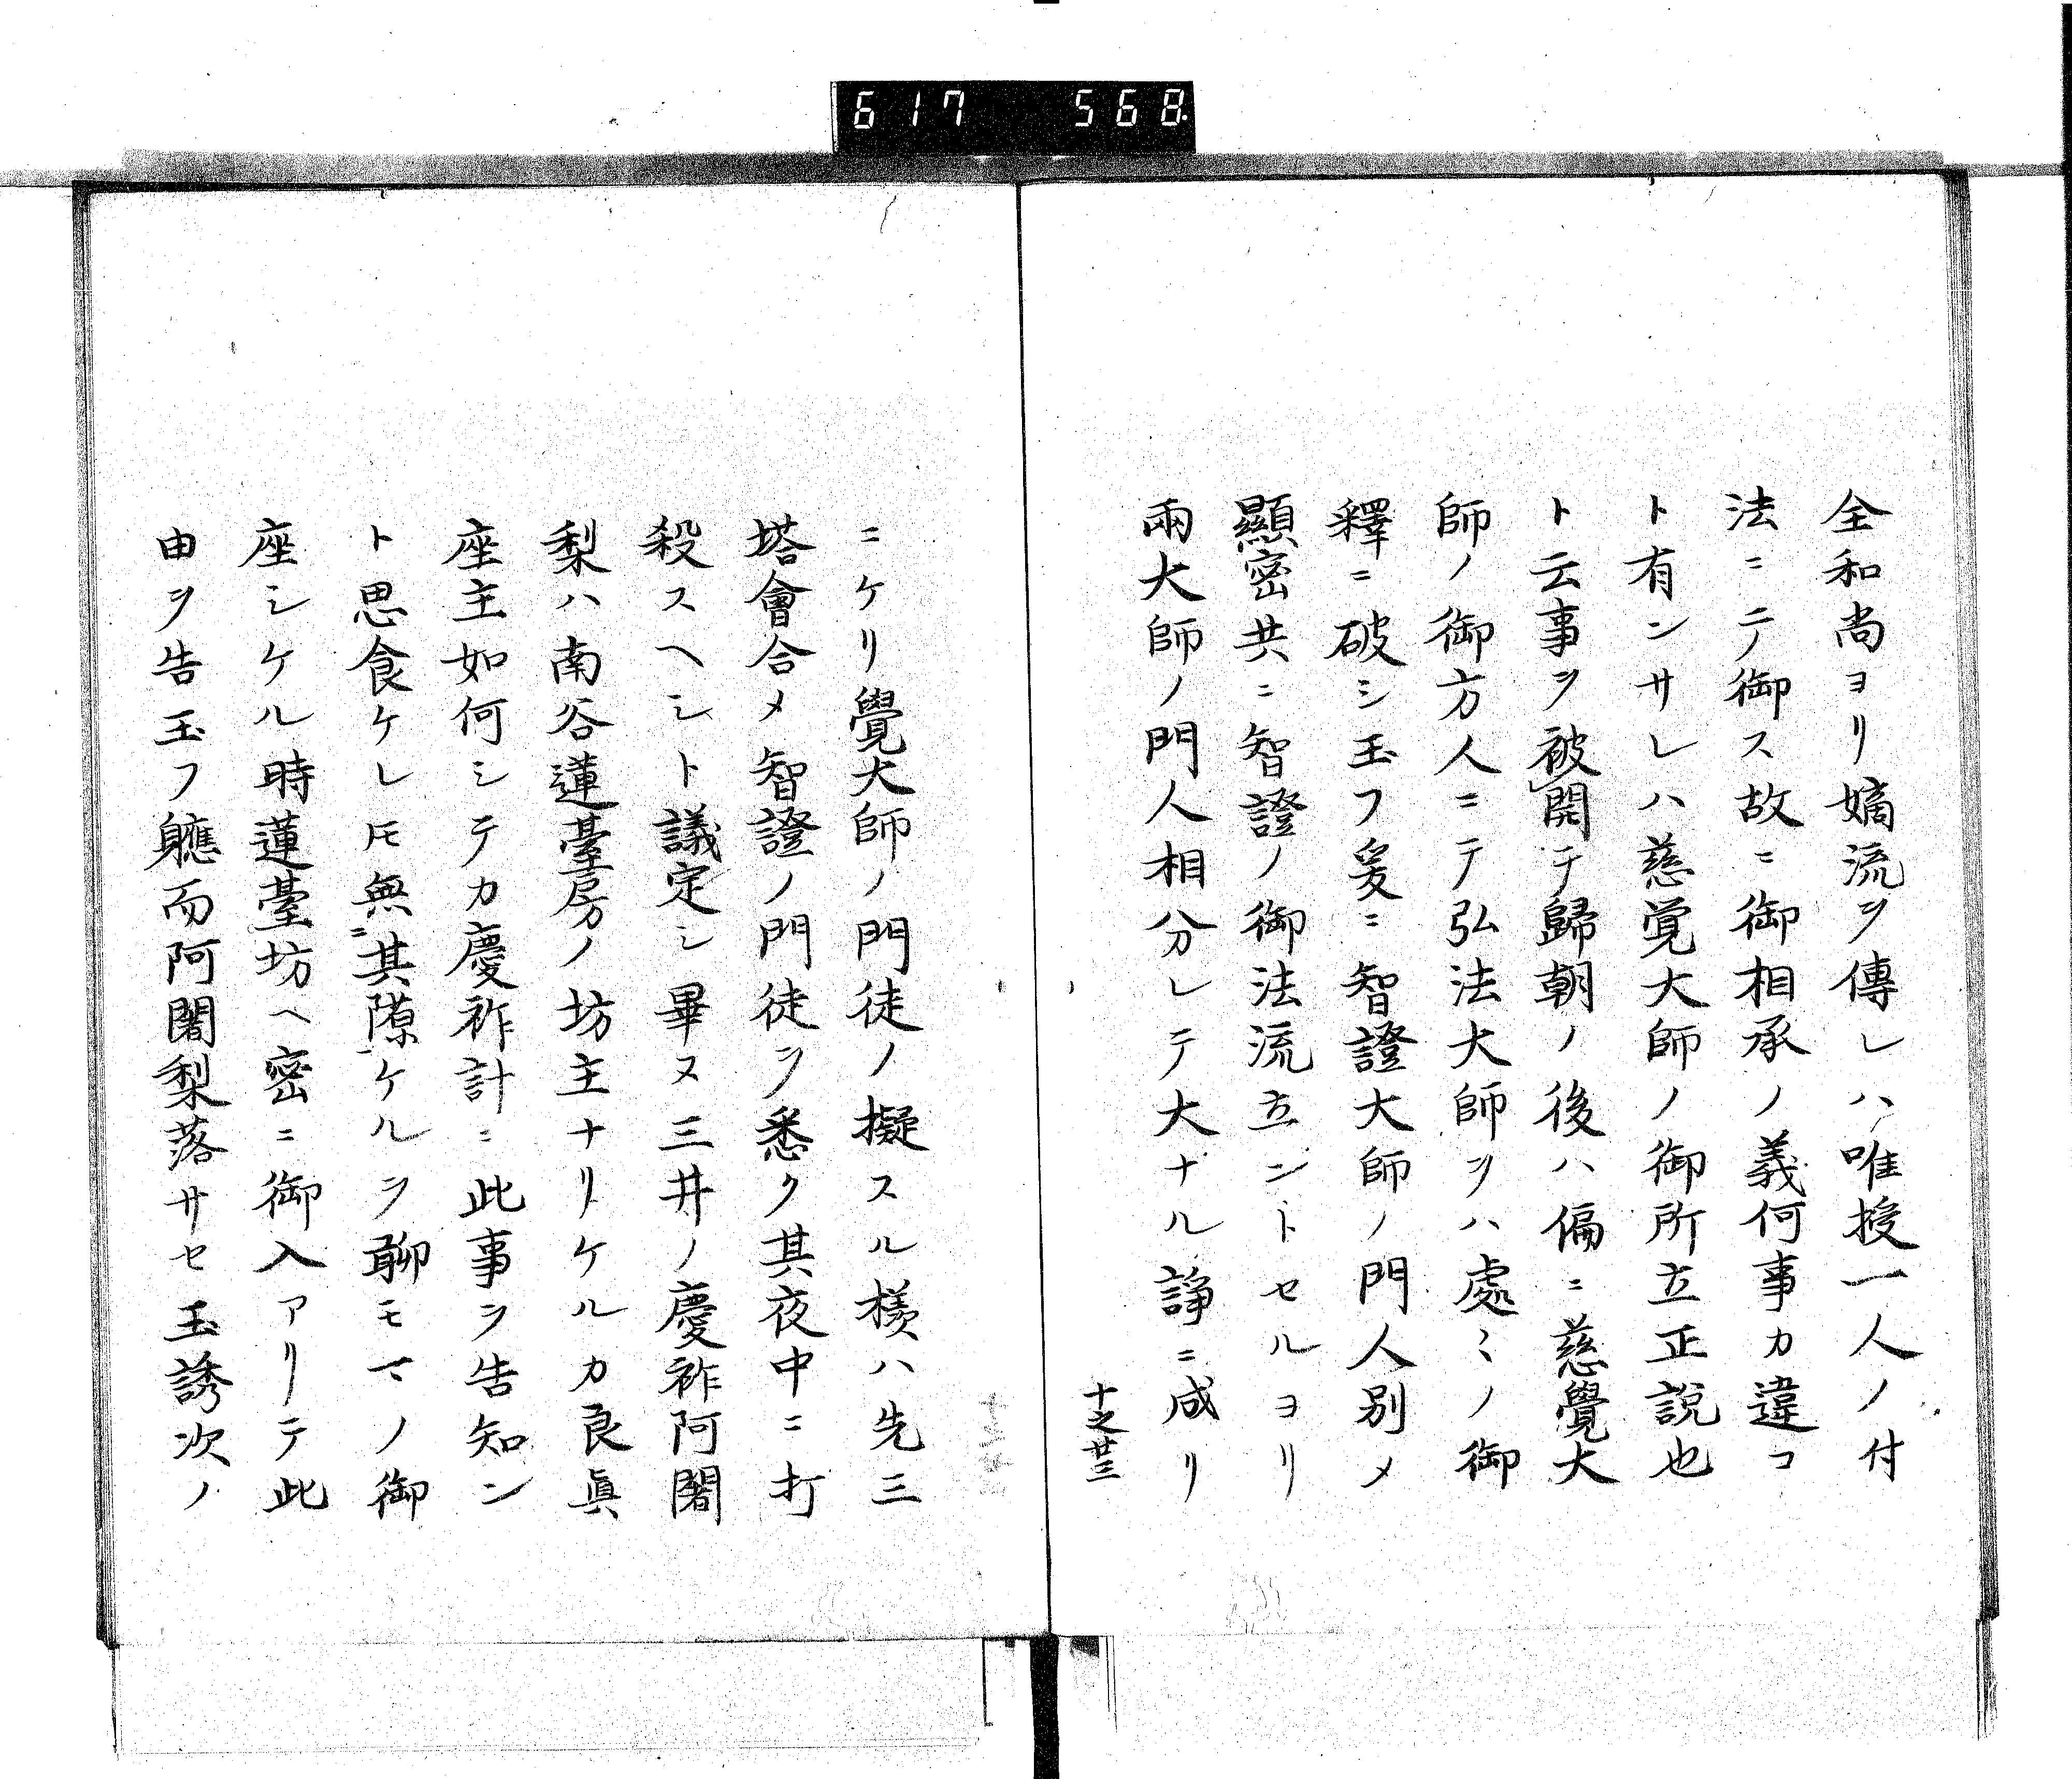 617 568.
全和尚ヨリ嫡流ヲ傳レハ唯授一人ノ付
法ニテ御ス故ニ御相承ノ義何事カ違コ
ト有ンサレハ慈覚大師ノ御所立正説也
ト云事ヲ被開テ歸朝ノ後ハ偏ニ慈覺大
師ノ御方人ニテ弘法大師ヲハ處〻ノ御
釋ニ破シ玉フ爰ニ智證大師ノ門人別メ
顯密共ニ智證ノ御法流立ントセルヨリ
兩大師ノ門人相分レテ大ナル諍ニ成リ
十之廿三
ニケリ覺大師ノ門徒ノ擬スル様ハ先三
塔會合メ智證ノ門徒ヲ悉ク其夜中ニ打
殺スヘシト議定シ畢ヌ三井ノ慶祚阿闍
梨ハ南谷蓮臺房ノ坊主ナリケルカ良眞
座主如何シテカ慶祚計ニ此事ヲ告知ン
ト思食ケレ𪜈無其隙ケルヲ聊モマノ御
座シケル時蓮臺坊ヘ密ニ御入アリテ此
由ヲ告玉フ軈而阿闍梨落サセ玉誘次ノ